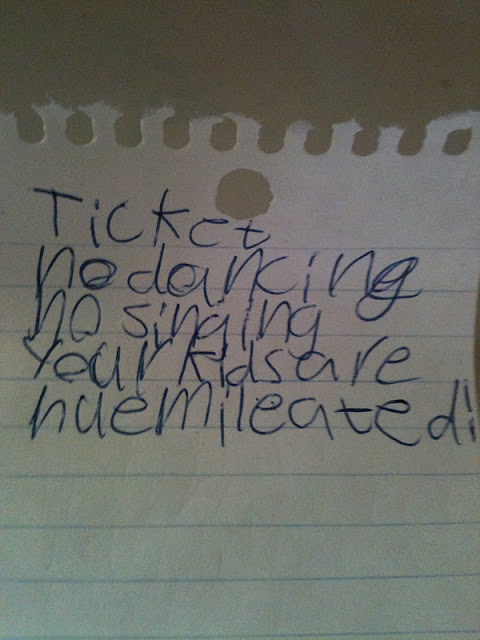 Ticket
no dancing
no singing
Your kids are
huemileated!